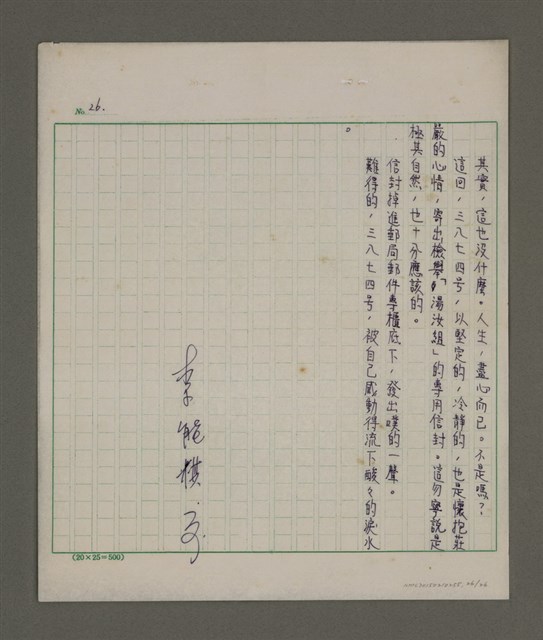 No. 26.
其實，這也沒什麼。人生，盡心而已。不是嗎？
這回，三八七四号，以堅定的，冷靜的，也是懷抱莊
嚴的心情，寄出檢舉「湯汝組」的專用信封。這勿寧說是
極其自然，也十分應該的。
信封掉進郵局郵件專櫃底下，發出噗的一聲。
難得的，三八七四号，被自己感動得流下酸々的淚水
。
李能棋
(20×25=500)